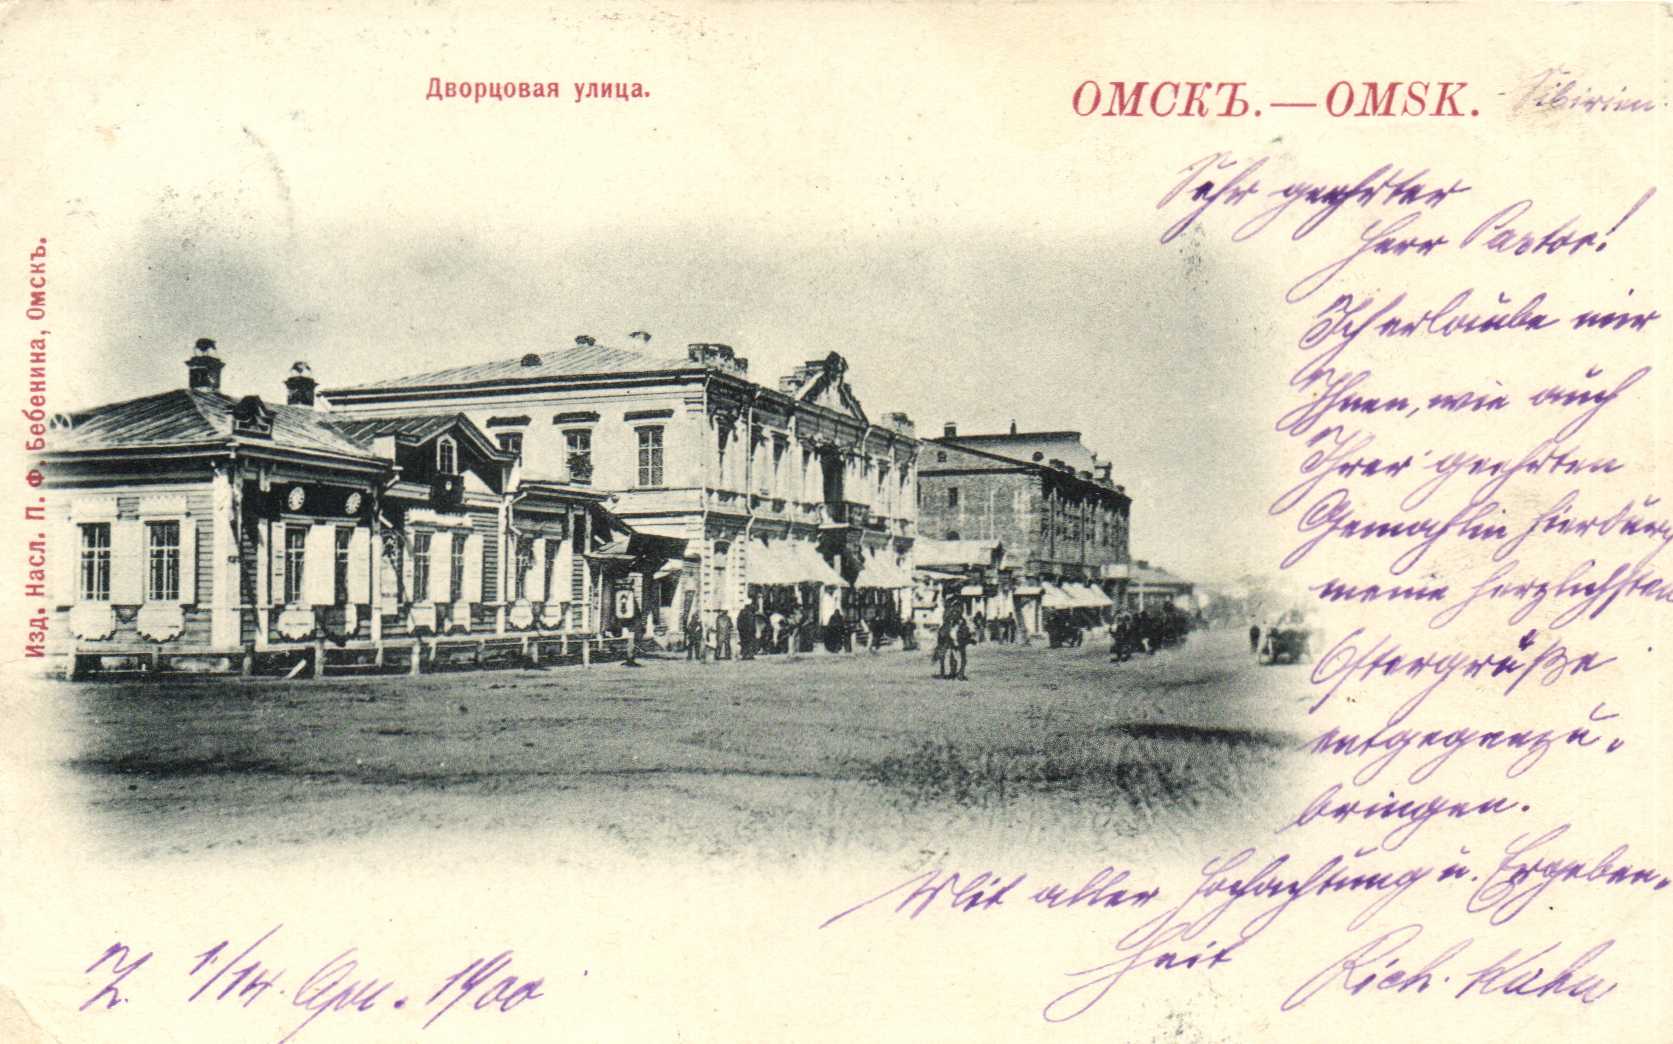 Дворцовая улица.
ОМСКЪ.—OMSK.
Sibirien.
Изд. Насл. П. Ф. Бебенина, Омскъ.
Sehr geehrter
Herr Pastor!
Ich erlaube mir
Ihnen, wie auch
Ihrer geehrten
Gemahlin hierdurch
meine herzlichsten
Ostergrüße
entgegenzu-
bringen.
Mit aller Hochachtung u. Ergeben-
heit Rich. Hahn
1/14. Apr. 1900